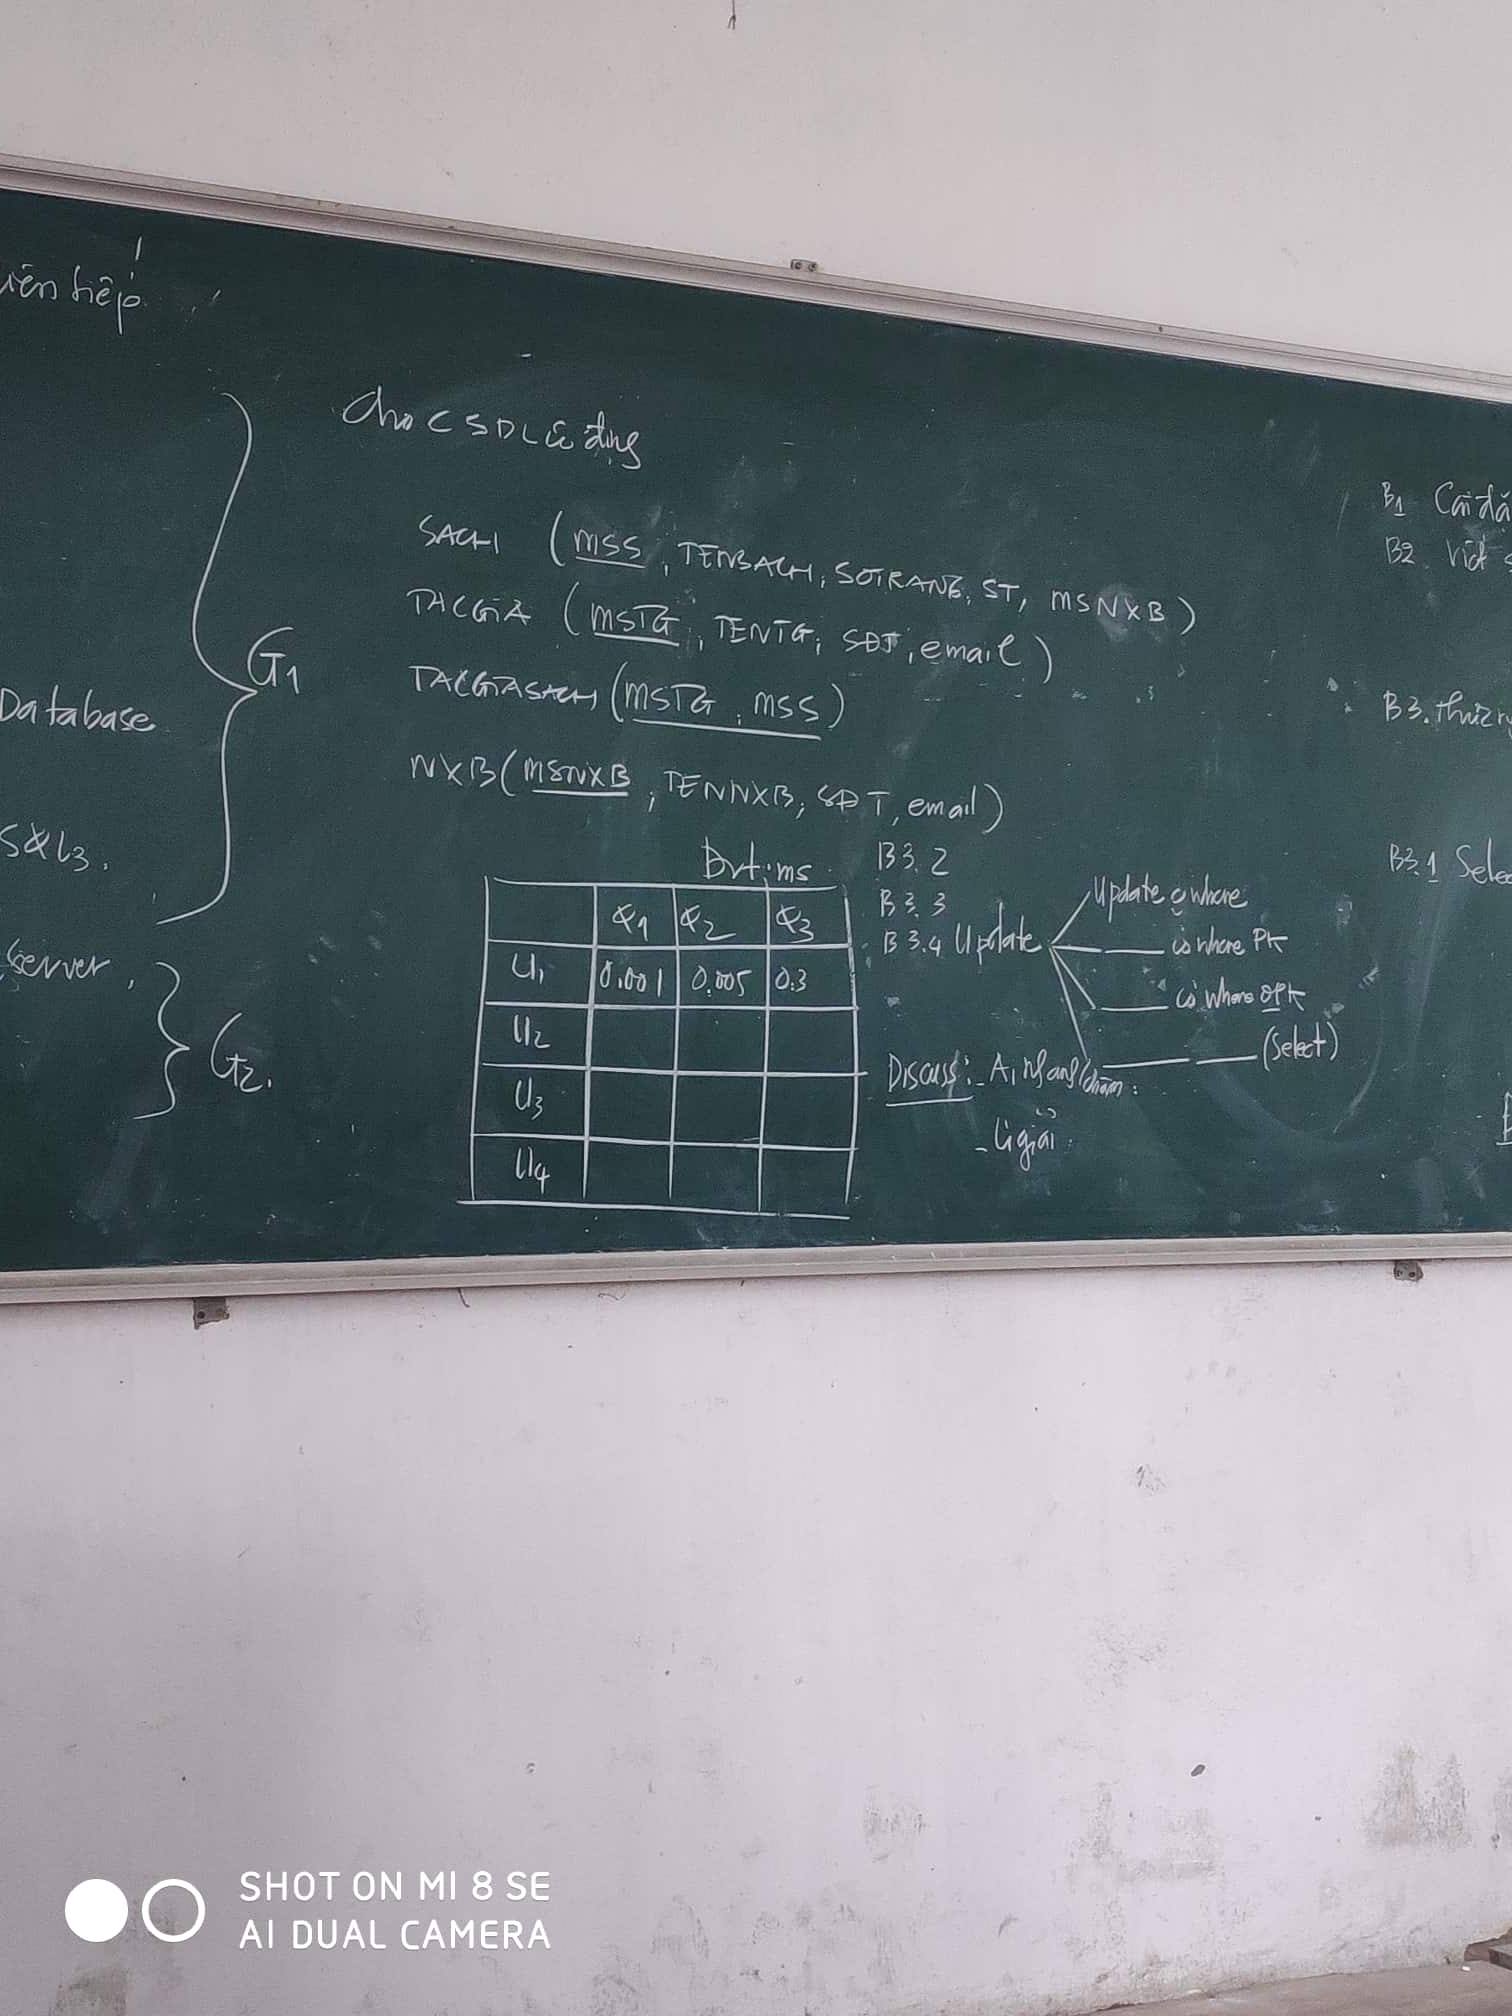 tiếp
G1
Database
SQL3.
Server,
G2.
Cho CSDL
SACH (MSS, TENSACH, SOTRANG, ST, MSNXB)
TACGIA (MSTG, TENTG, SĐT, email)
TACGIASACH (MSTG, MSS)
NXB(MSNXB, TENNXB, SĐT, email)
Đvt: ms
Q1 Q2 Q3
U1 0.001 0.005 0.3
U2
U3
U4
B3.2
B3.3
B3.4 Update
Update where
có where PK
có where
(Select)
Discuss: - Ai nhanh/chậm.
- Lí giải.
B1 Cài
B2. Viết
B3.
B3.1
SHOT ON MI 8 SE
AI DUAL CAMERA